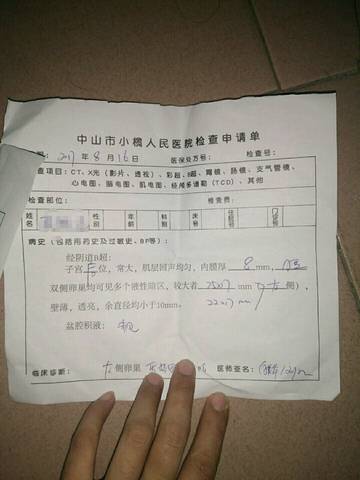 中山市小榄人民医院检查申请单
期: 2017 年 8 月 16 日 医保处方号: 检查号:
检查项目: CT、X光 (影片、透视)、彩超、B超、胃镜、肠镜、支气管镜、
心电图、脑电图、肌电图、经颅多谱勒 (TCD)、其他
检查部位: 检查费:
姓名 性别 年龄 科别 床号 住院号 门诊号
病史 (包括用药史及过敏史、BP等):
经阴道B超:
子宫后位, 常大, 肌层回声均匀, 内膜厚 8 mm,
双侧卵巢均可见多个液性暗区, 较大者 25x17 mm 侧),
壁薄, 透亮, 余直径均小于10mm。 22x17 mm
盆腔积液:
临床诊断: 侧卵巢 医师签名: